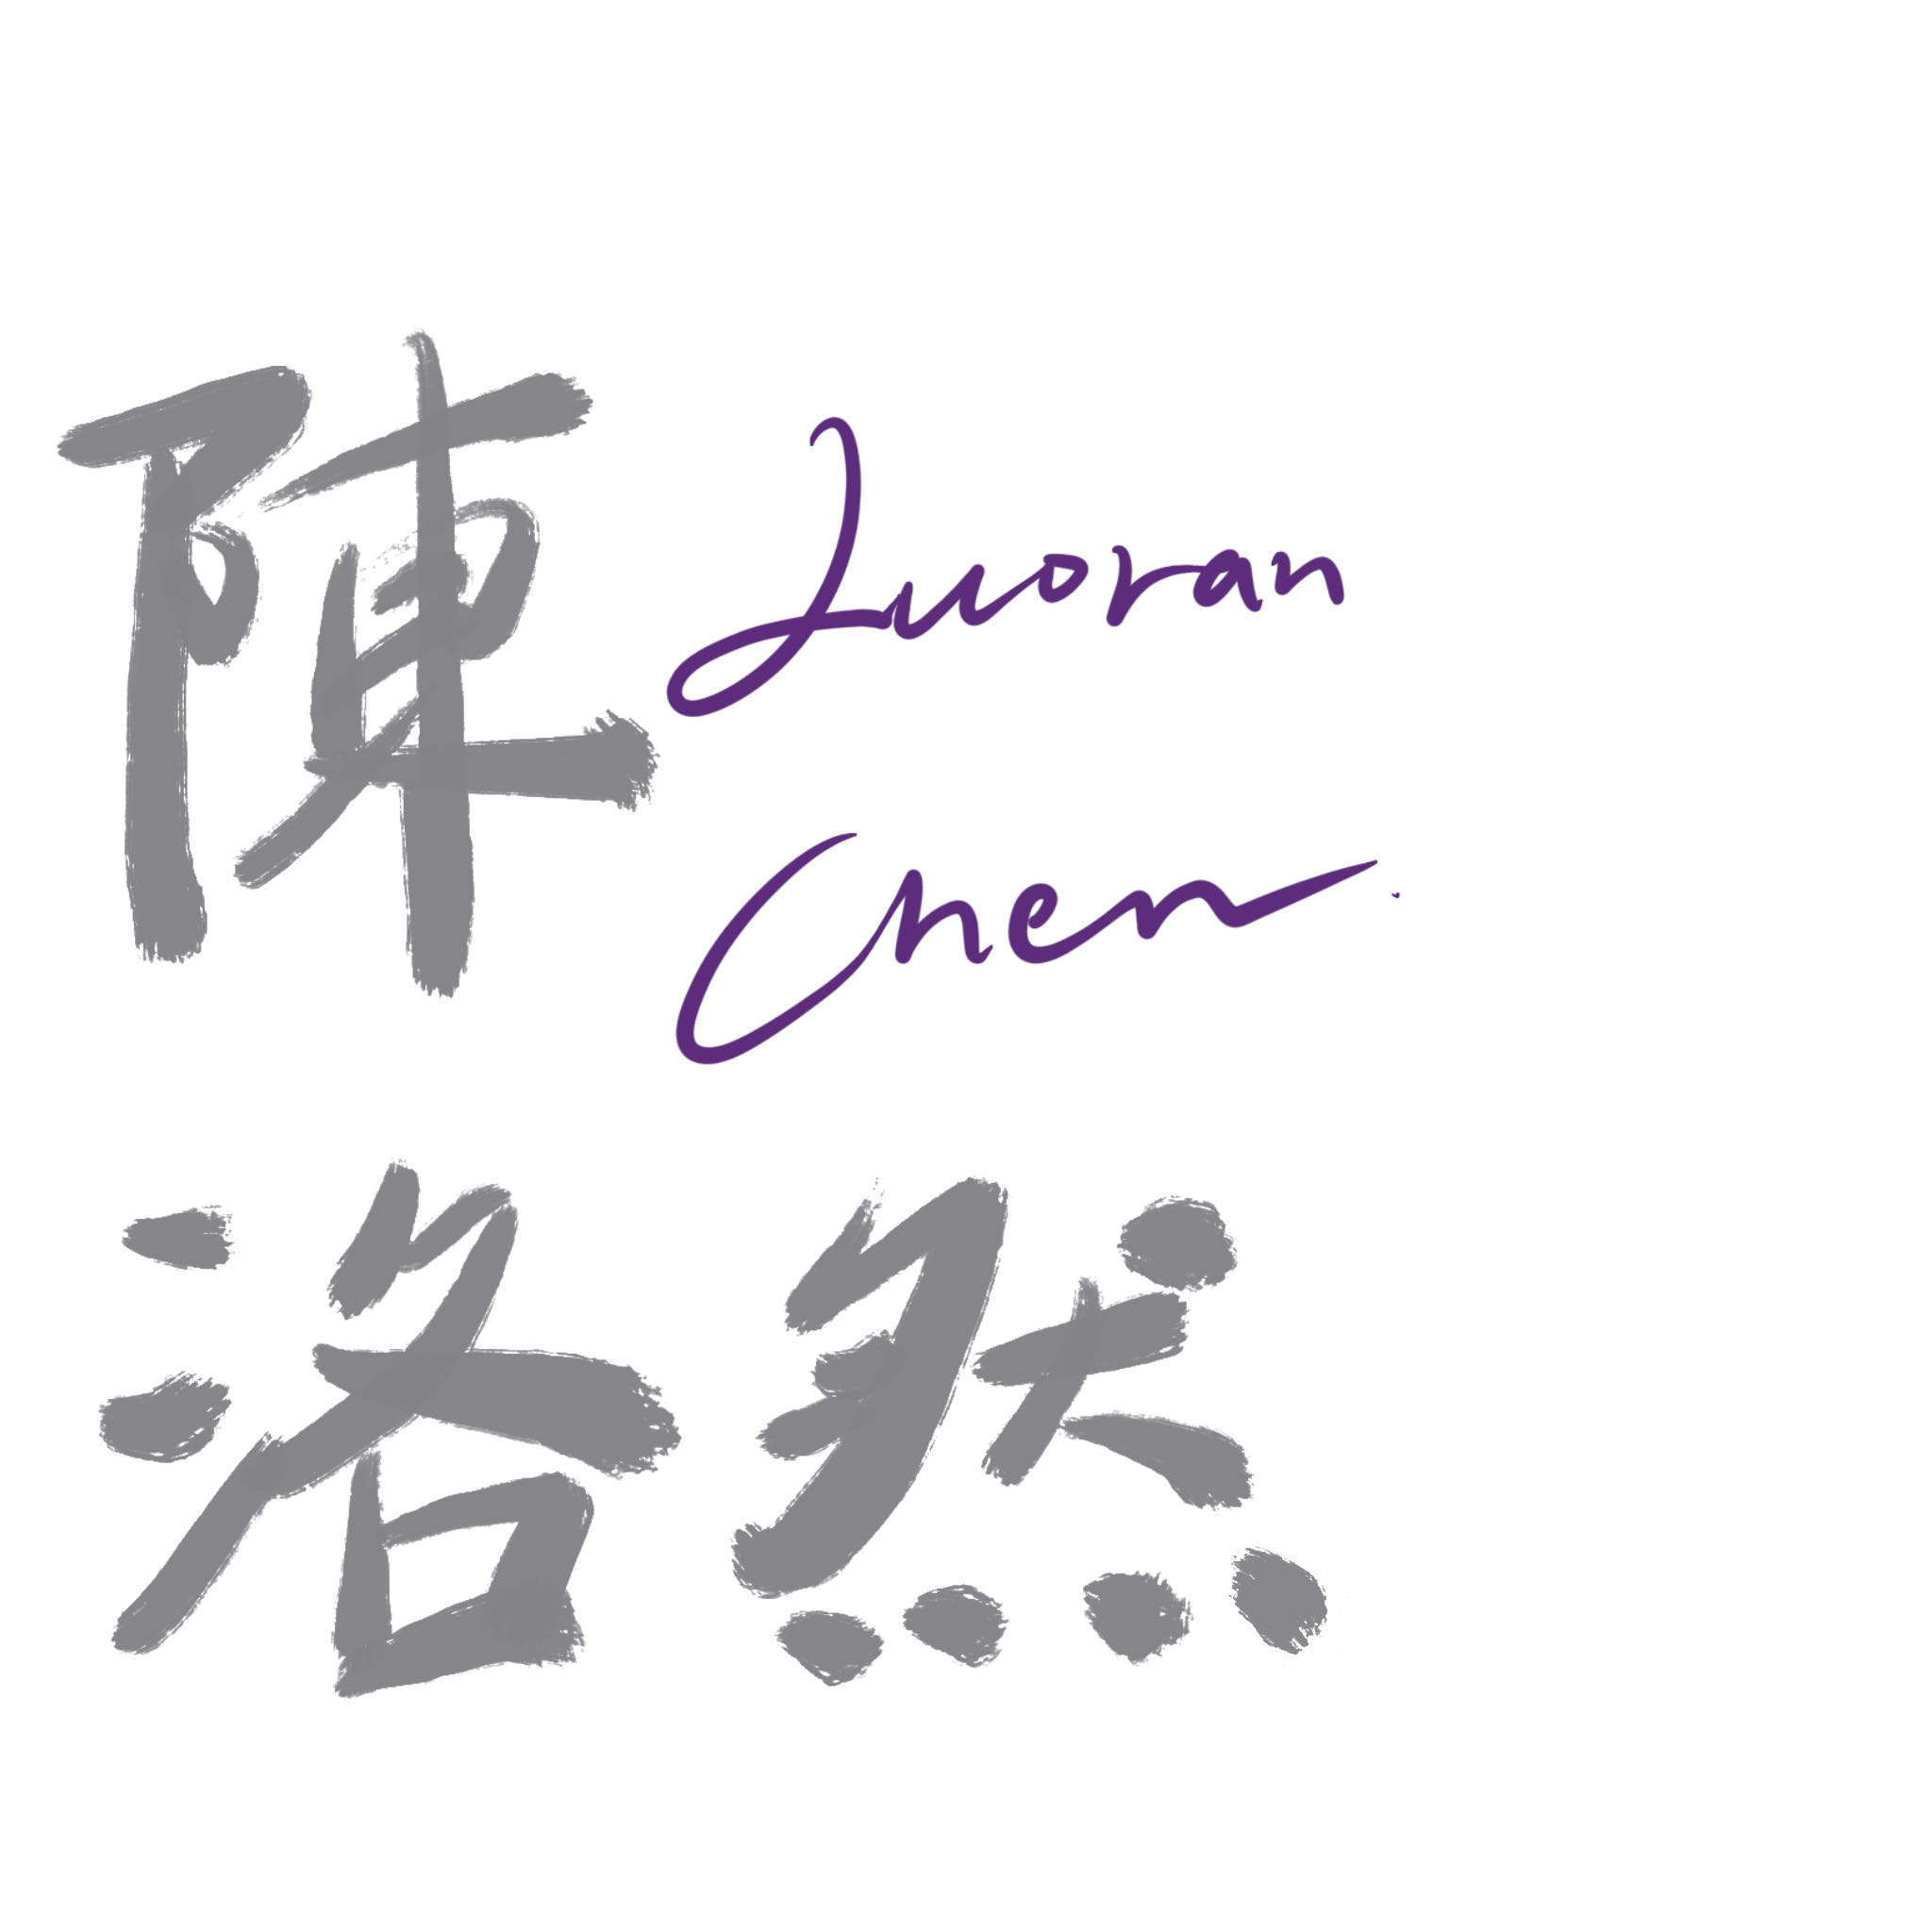 陳
Luoran
Chen.
洛然